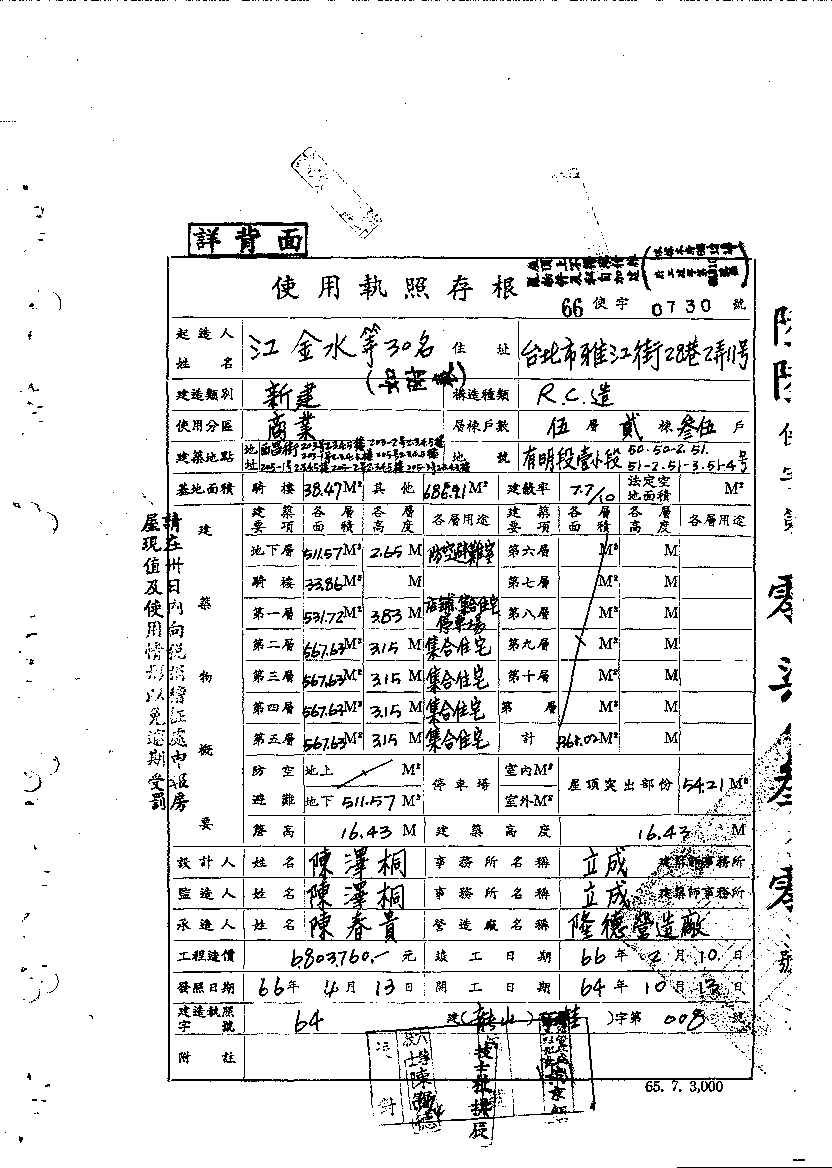 詳背面
使用執照存根
66 使字 0730 號
起造人姓名 江金水等30名 住址 台北市雅江街28巷2弄11號
建造類別 新建 構造種類 R.C.造
使用分區 商業 層棟戶數 伍層 貳棟 叁伍戶
建築地點 地址 西昌街203號2.3.4.5樓 203-2號2.3.4.5樓
地號 有明段壹小段 50.50-2.51.
51-2.51-3.51-4號
基地面積 騎樓 38.47M² 其他 M² 建蔽率 7.7/10 法定空地面積 M²
建築物概要 建築要項 各層面積 各層高度 各層用途 建築要項 各層面積 各層高度 各層用途
地下層 511.57M² 2.65M 防空避難室 第六層 M² M
騎樓 33.86M² M 第七層 M² M
第一層 531.72M² 3.83M 店鋪.集合住宅 停車場 第八層 M² M
第二層 567.63M² 3.15M 集合住宅 第九層 M² M
第三層 567.63M² 3.15M 集合住宅 第十層 M² M
第四層 567.63M² 3.15M 集合住宅 第 層 M² M
第五層 567.63M² 3.15M 集合住宅 計 M² M
防空避難 地上 M² 停車場 室內M² 屋頂突出部份 54.21M²
地下 511.57M² 室外M²
簷高 16.43M 建築高度 16.43M
設計人 姓名 陳澤桐 事務所名稱 立成 建築師事務所
監造人 姓名 陳澤桐 事務所名稱 立成 建築師事務所
承造人 姓名 陳春貴 營造廠名稱 隆德營造廠
工程造價 6803760.-元 竣工日期 66年2月10日
發照日期 66年4月13日 開工日期 64年10月13日
建造執照字號 64 建( )字第 008 號
附註
65. 7. 3,000
請在卅日內向稅捐稽征處申報房
屋現值及使用情形以免逾期受罰